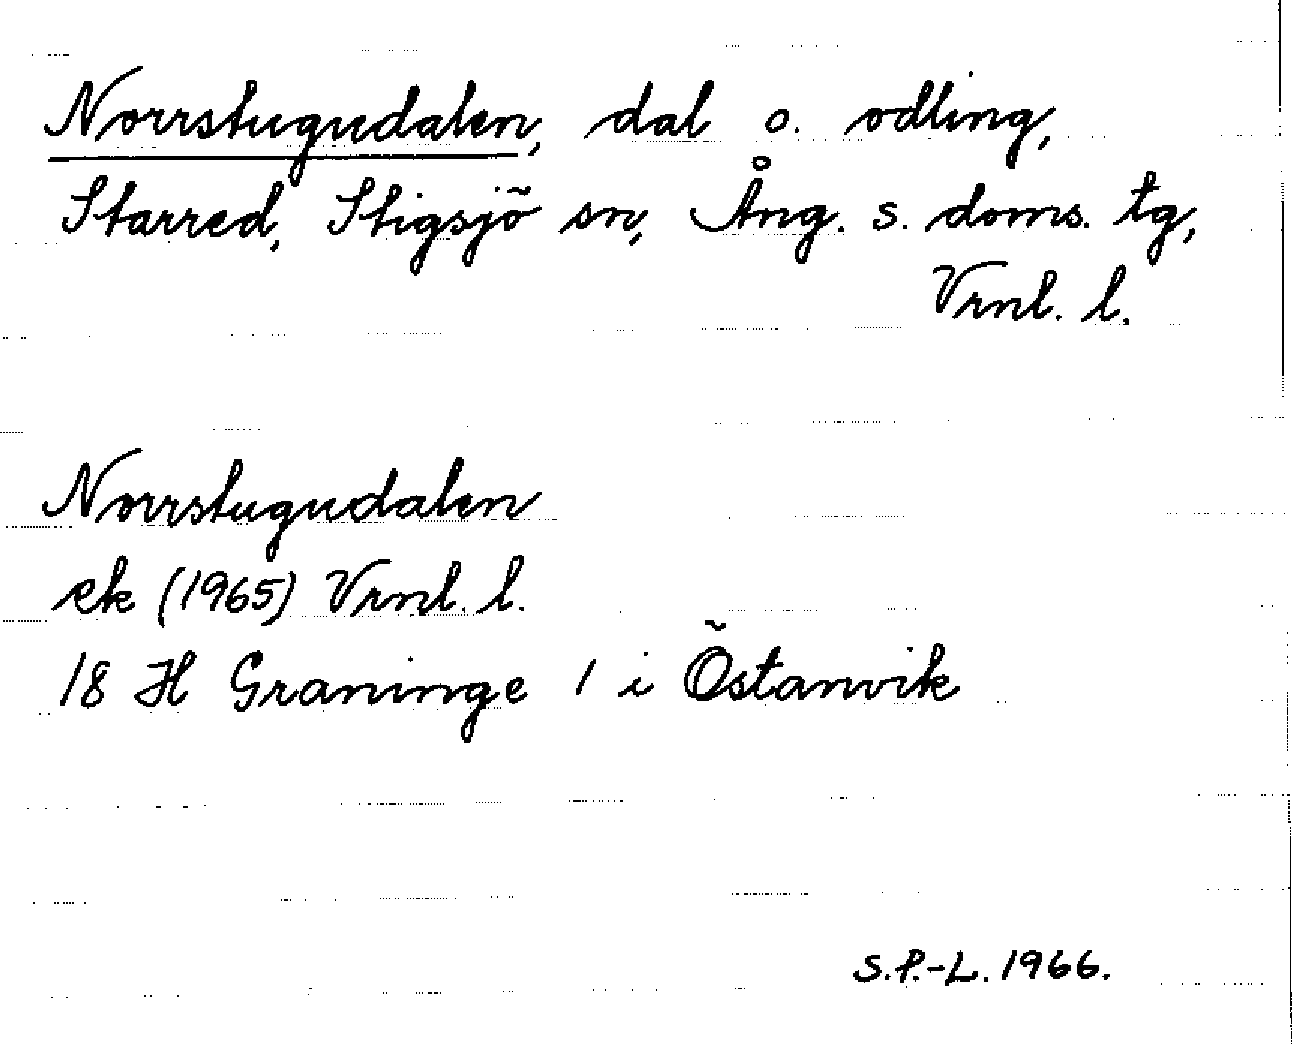 Norrstugudalen, dal o. odling,
Starred, Stigsjö sn, Ång. s. doms. tg,
Vrnl. l.
Norrstugudalen
ek (1965) Vrnl. l.
18 H Graninge 1 i Östanvik
S.P.-L. 1966.